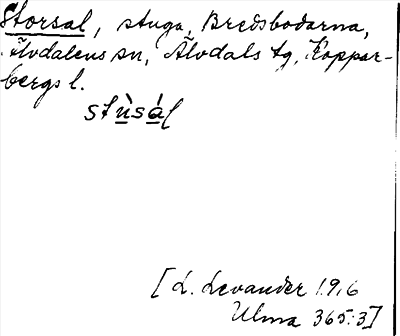 Storsal, stuga, Bredsbodarna,
Älvdalens sn, Älvdals tg, Koppar-
bergs l.
stù̲sá̲l
[L. Levander 1916
Ulma 365:3]